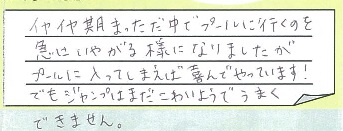 イヤイヤ期まっただ中でプールに行くのを
急にいやがる様になりましたが
プールに入ってしまえば喜んでやっています!
でもジャンプはまだこわいようでうまく
できません。